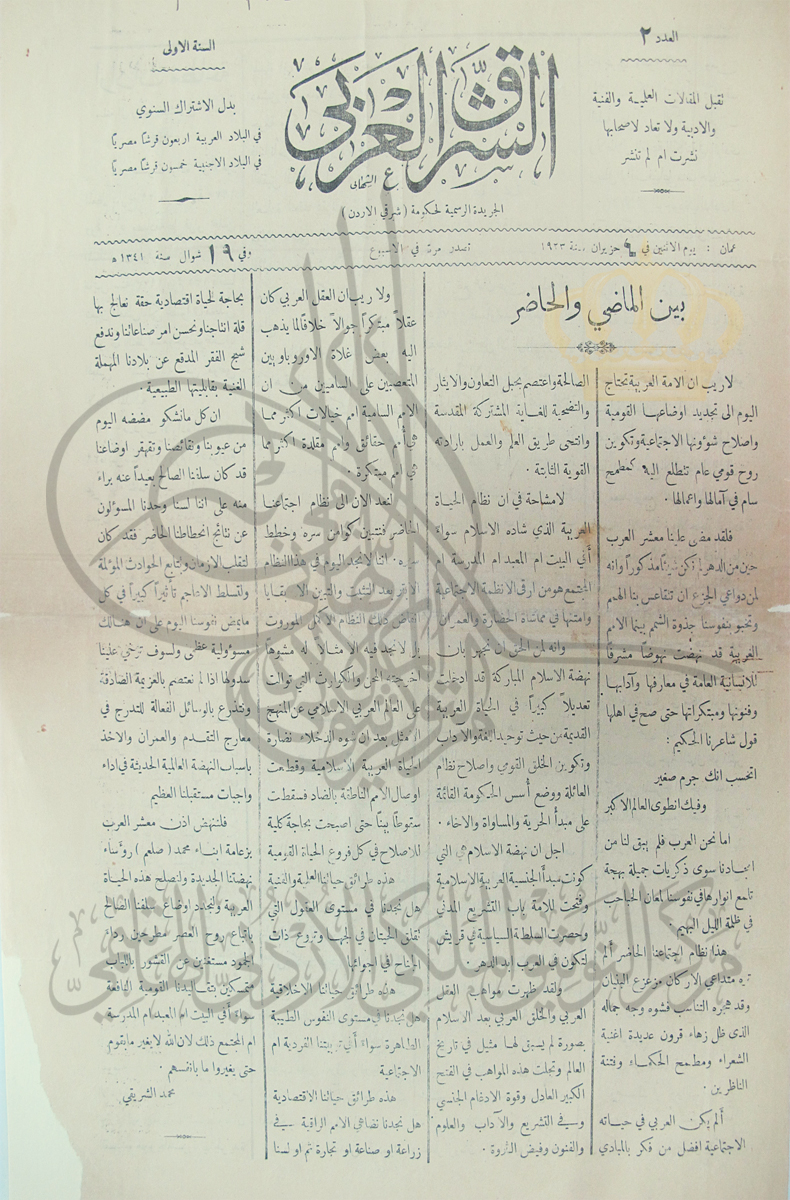 العدد ٢
تقبل المقالات العلمية والفنية
والادبية ولا تعاد لاصحابها
نشرت ام لم تنشر
الشرق العربي
الجريدة الرسمية لحكومة (شرقي الاردن)
السنة الاولى
بدل الاشتراك السنوي
في البلاد العربية اربعون قرشاً مصرياً
في البلاد الاجنبية خمسون قرشاً مصرياً
عمان : يوم الاثنين في حزيران سنة ١٩٢٣
تصدر مرة في الاسبوع
وفي ١٩ شوال سنة ١٣٤١ ه
بين الماضي والحاضر
لا ريب ان الامة العربية تحتاج
اليوم الى تجديد اوضاعها القومية
واصلاح شؤونها الاجتماعية وتكوين
روح قومي عام تتطلع اليه كمطمح
سام في آمالها واعمالها .
فلقد مضى علينا معشر العرب
حين من الدهر لم نكن شيئاً مذكوراً وانه
لمن دواعي الجزع ان تتقاعس بنا الهمم
وتخبو بنفوسنا جذوة الشمم بينما الامم
الغربية قد نهضت نهوضاً مشرفاً
للانسانية العامة في معارفها وآدابها
وفنونها ومبتكراتها حتى صح في اهلها
قول شاعرنا الحكيم :
اتحسب انك جرم صغير
وفيك انطوى العالم الاكبر
اما نحن العرب فلم يبق لنا من
امجادنا سوى ذكريات جميلة بهجة
تلمع انوارها في نفوسنا لمعان الحباحب
في ظلمة الليل البهيم .
هذا نظام اجتماعنا الحاضر ألم
تره متداعي الاركان مزعزع البنيان
وقد هجره التناسب فشوه وجه جماله
الذي ظل زهاء قرون عديدة اغنية
الشعراء ومطمح الحكماء وفتنة
الناظرين .
ألم يكن العربي في حياته
الاجتماعية افضل من فكر بالمبادي
الصالحة واعتصم بحبل التعاون والايثار
والتضحية للغاية المشتركة المقدسة
وانتحى طريق العلم والعمل بارادته
القوية الثابتة .
لا مشاحة في ان نظام الحياة
العربية الذي شاده الاسلام سواء
أفي البيت ام المعبد ام المدرسة ام
المجتمع هو من ارقى الانظمة الاجتماعية
وامتنها في مماشاة الحضارة والعمران
وانه لمن الحق ان نجهر بان
نهضة الاسلام المباركة قد ادخلت
تعديلاً كبيراً في الحياة العربية
القديمة من حيث توحيد اللغة والاداب
وتكوين الخلق القومي واصلاح نظام
العائلة ووضع أسس الحكومة القائمة
على مبدأ الحرية والمساواة والاخاء .
اجل ان نهضة الاسلام هي التي
كونت مبدأ الجنسية العربية الاسلامية
وفتحت للامة باب التشريع المدني
وحصرت السلطة السياسية في قريش
لتكون في العرب ابد الدهر .
ولقد ظهرت مواهب العقل
العربي والخلق العربي بعد الاسلام
بصورة لم يسبق لها مثيل في تاريخ
العالم وتجلت هذه المواهب في الفتح
الكبير العادل وقوة الادغام الجنسي
وفي التشريع والآداب والعلوم
والفنون وفيض الثروة .
ولا ريب ان العقل العربي كان
عقلاً مبتكراً جوالاً خلافاً لما يذهب
اليه بعض غلاة الاوروباويين
المتعصبين على الساميين من ان
الامم السامية امم خيالات اكثر مما
هي أمم حقائق وامم مقلدة اكثر مما
هي امم مبتكرة .
لنعد الان الى نظام اجتماعنا
الحاضر فنتبين كوامن سره وخطط
سيره . اننا لا نجد اليوم في هذا النظام
الابتر بعد التثبت والتبين الا بقايا
انقاض ذلك النظام الاكمل الموروث
بل لا نجد فيه الا مثالاً له مشوهاً
اخرجته المحن والكوارث التي توالت
على العالم العربي الاسلامي عن المنهج
الامثل بعد ان شوه الدخلاء نضارة
الحياة العربية الاسلامية وقطعت
اوصال الامم الناطقة بالضاد فسقطت
سقوطاً بيناً حتى اصبحت بحاجة كلية
للاصلاح في كل فروع الحياة القومية
هذه طرائق حياتنا العلمية والفنية
هل نجدنا في مستوى العقول التي
تقلق الحيتان في لججها وتروع ذات
الجناح في اجوائها
هذه طرائق حياتنا الاخلاقية
هل نجدنا في مستوى النفوس الطيبة
الطاهرة سواء أفي تربيتنا الفردية ام
الاجتماعية
هذه طرائق حياتنا الاقتصادية
هل نجدنا نضاهي الامم الراقية في
زراعة او صناعة او تجارة ثم او لسنا
بحاجة لحياة اقتصادية حقة نعالج بها
قلة انتاجنا ونحسن امر صناعاتنا وندفع
شبح الفقر المدقع عن بلادنا المهملة
الغنية بقابليتها الطبيعية .
ان كل ما نشكو مضضه اليوم
من عيوبنا ونقائصنا وتقهقر اوضاعنا
قد كان سلفنا الصالح بعيداً عنه براء
منه على اننا لسنا وحدنا المسؤولون
عن نتائج انحطاطنا الحاضر فقد كان
لتقلب الازمان وتتابع الحوادث المؤلمة
ولتسلط الاعاجم تأثيراً كبيراً في كل
ما يمض نفوسنا اليوم على ان هنالك
مسؤولية عظمى ولسوف ترخي علينا
سدولها اذا لم نعتصم بالعزيمة الصادقة
ونتذرع بالوسائل الفعالة للتدرج في
معارج التقدم والعمران والاخذ
باسباب النهضة العالمية الحديثة في اداء
واجبات مستقبلنا العظيم
فلننهض اذن معشر العرب
بزعامة ابناء محمد (صلعم) رؤساء
نهضتنا الجديدة ولنصلح هذه الحياة
العربية ولنجدد اوضاع سلفنا الصالح
باتباع روح العصر مطرحين رداء
الجمود مستغنين عن القشور باللباب
متمسكين بتقاليدنا القومية النافعة
سواء أفي البيت ام المعبد ام المدرسة
ام المجتمع ذلك لان الله لا يغير ما بقوم
حتى يغيروا ما بانفسهم .
محمد الشريقي